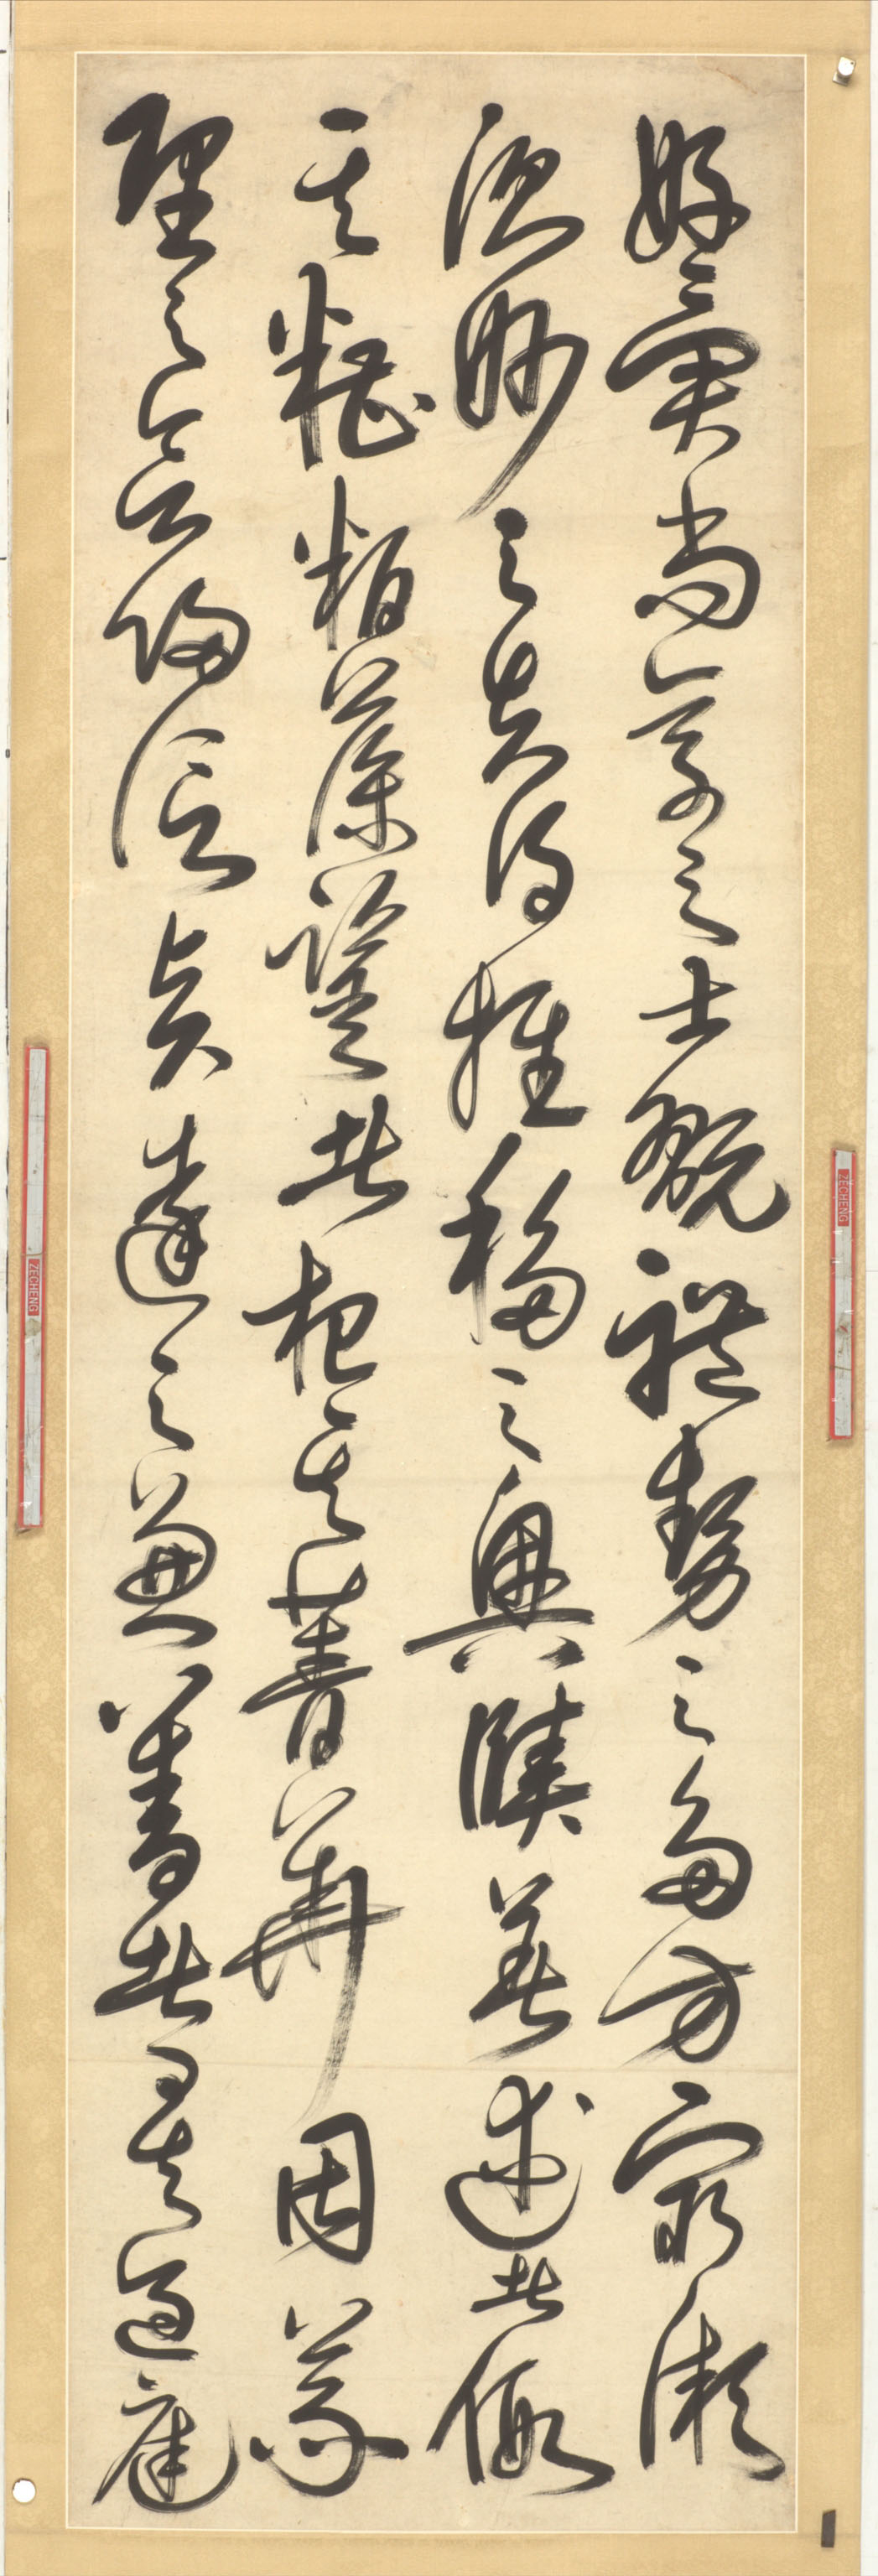 好異尚奇之士翫體勢之多方窮微
測妙之夫得推移之奧賾著述者假
其糟粕藻鑒者挹其菁華固義
理之會歸信賢達之兼善者矣過庭
ZECHENG
ZECHENG